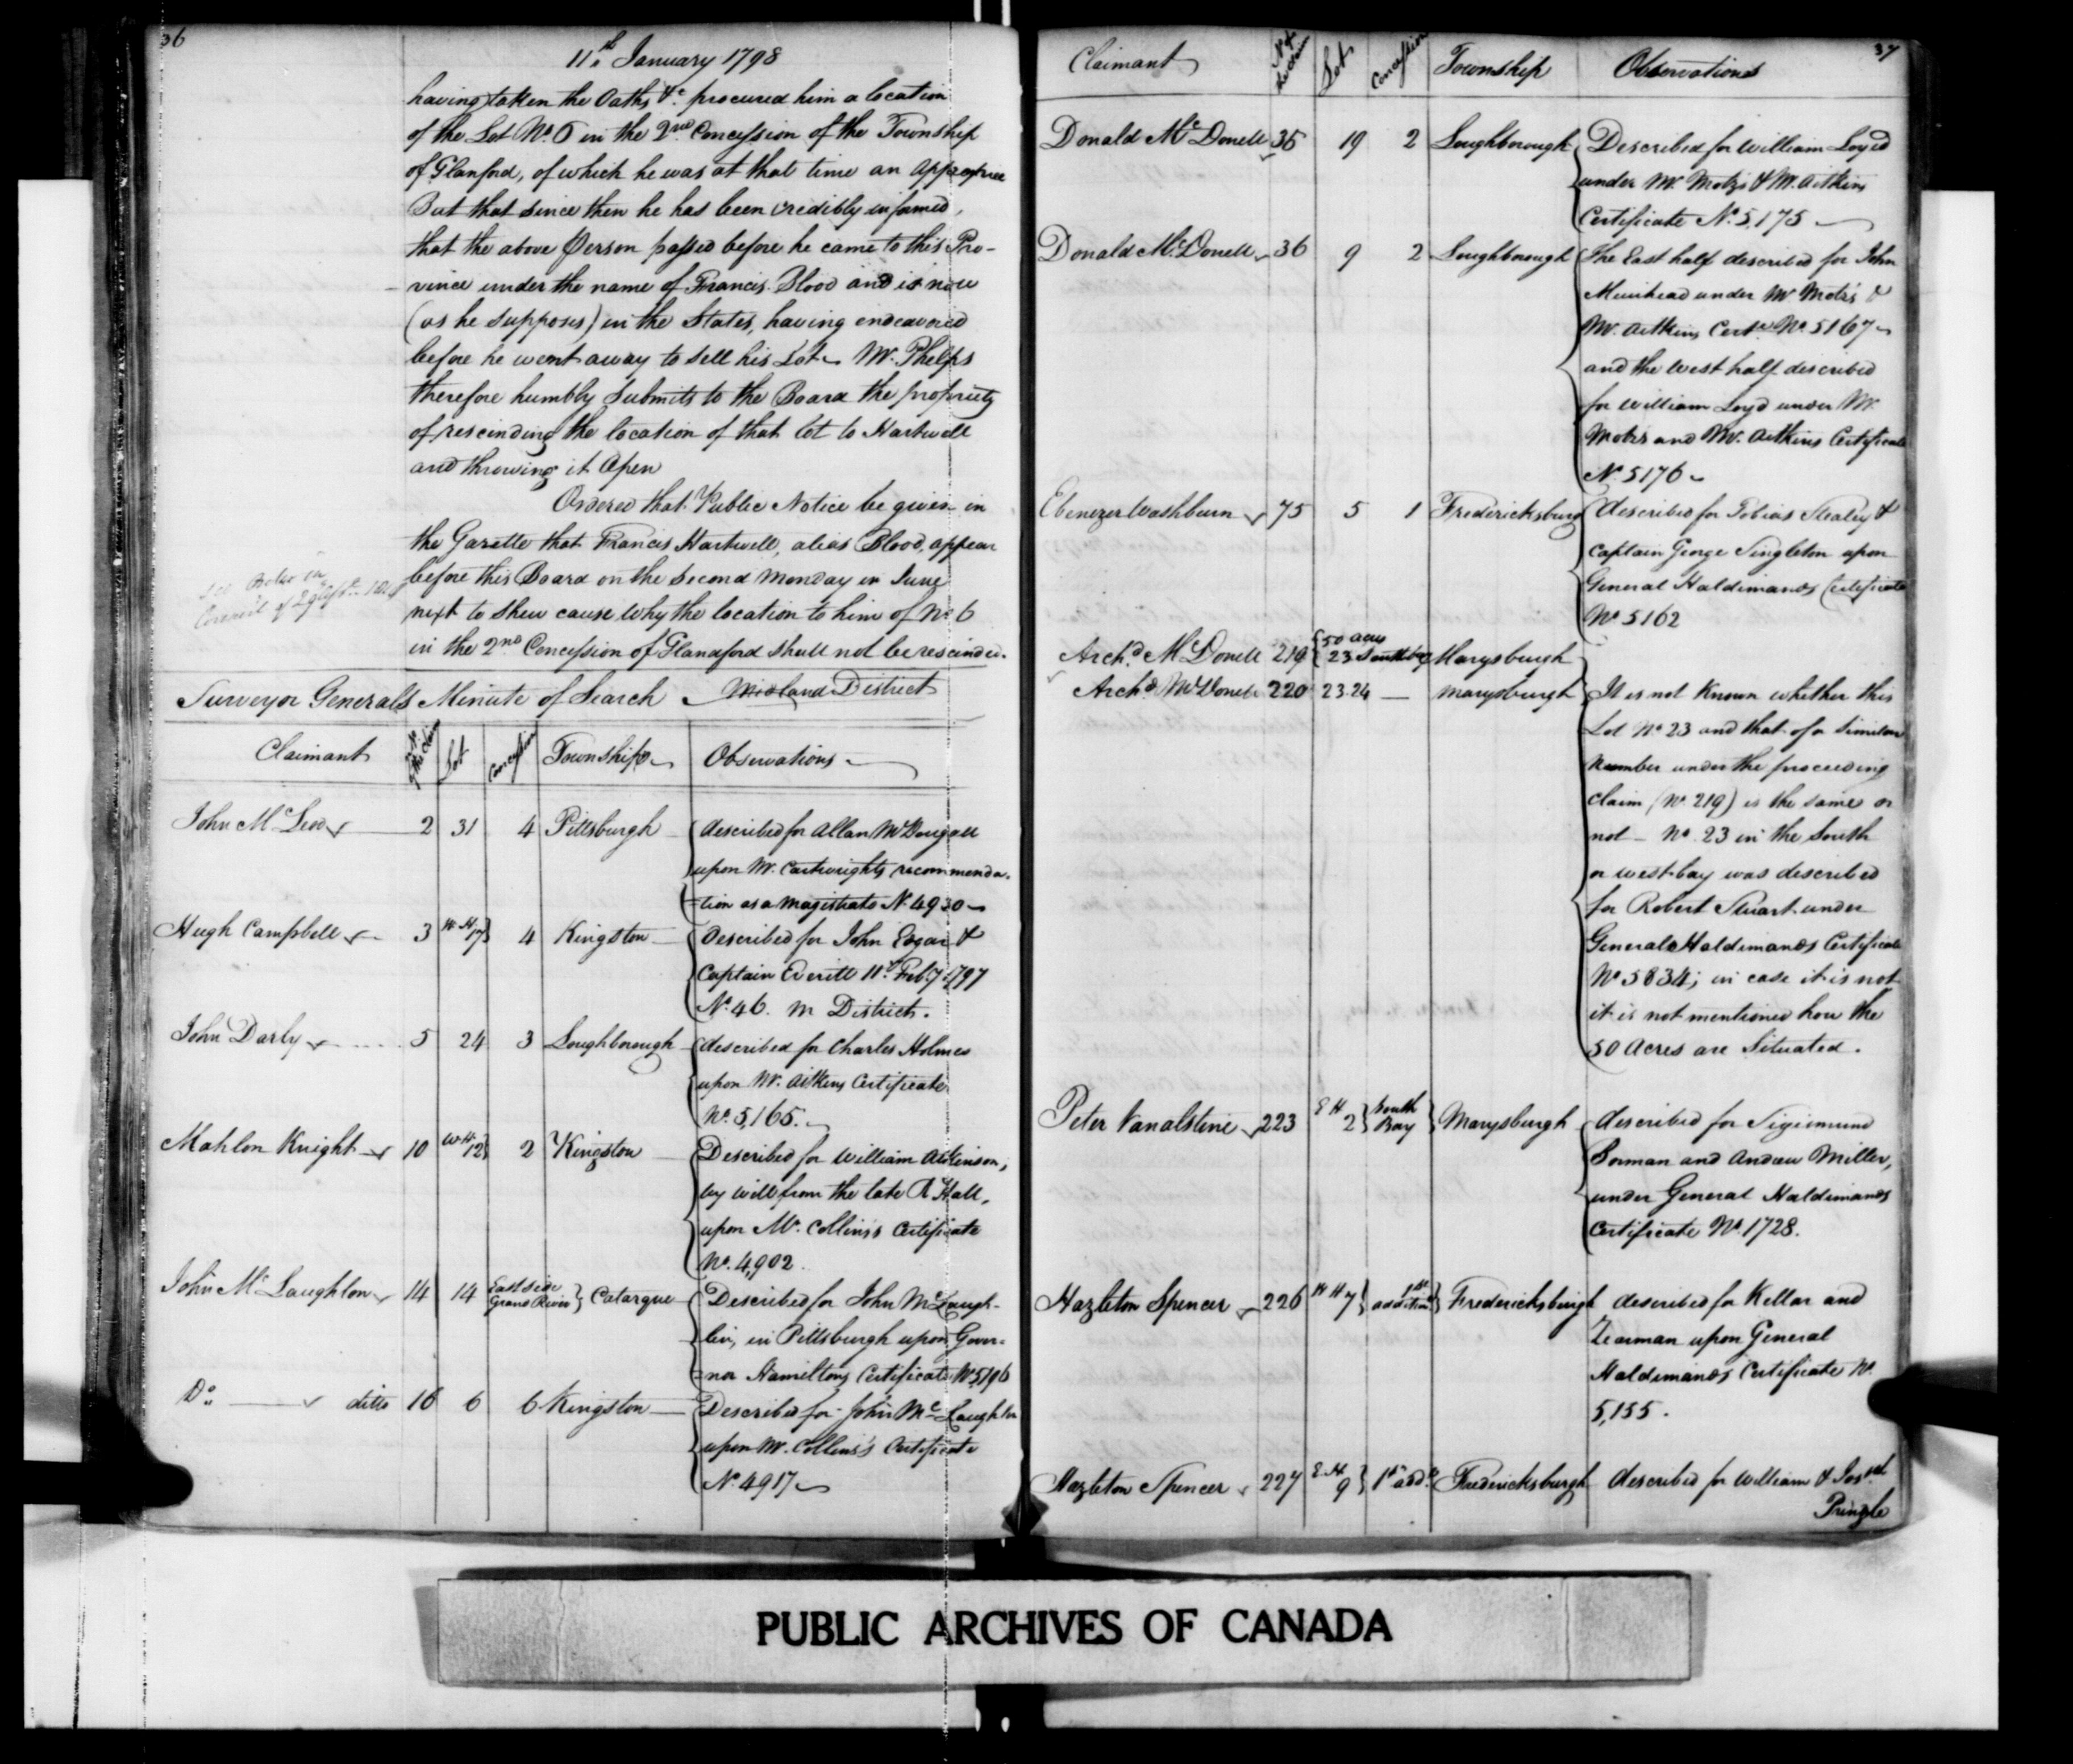 36
11th January 1798
having taken the Oaths &c. procured him a location
of the Lot No. 6 in the 2nd Concession of the Township
of Glanford, of which he was at that time an
But that since then he has been credibly informed,
that the above Person passed before he came to this Pro-
vince under the name of Francis Blood and is now
(as he supposes) in the States, having endeavored
before he went away to sell his Lot. Mr. Phelps
therefore humbly submits to the Board the propriety
of rescinding the location of that lot to Hartwell
and throwing it Open
Ordered that Public Notice be given in
the Gazette that Francis Hartwell, alias Blood, appear
before this Board on the second Monday in June
next to shew cause why the location to him of No 6
in the 2nd Concession of Glandford shall not be rescinded.
Surveyor Generals Minute of Search Midland District
Claimant No. of the Claim Lot Concession Township Observations
John McLeod 2 31 4 Pittsburgh described for Allan McDougall
upon Mr. Cartwrights recommenda-
tion as a Magistrate No. 4930
Hugh Campbell 3 W. H 17 4 Kingston Described for John Edgar &
Captain Everitt 11th Feby 1797
No. 46. M District.
John Darly 5 24 3 Loughborough described for Charles Holmes
upon Mr. Aitkins Certificate
No. 5,165.
Mahlon Knight 10 W. H. 12 2 Kingston Described for William Atkinson,
by will from the late R Hall,
upon Mr. Collins's Certificate
No. 4,902.
John McLaughlon 14 14 East side Grand River Catarque Described for John McLaugh-
lin, in Pittsburgh upon Gover-
=nor Hamiltons Certificate No 5196
Do. ditto 16 6 6 Kingston Described for John McLaughlin
upon Mr. Collins's Certificate
No. 4917
37
Claimant No. of the Claim Lot Concession Township Observations
Donald McDonell 35 19 2 Loughborough Described for William Loyd
under Mr. Motzs & Mr. Aitkins
Certificate No. 5,175
Donald McDonell 36 9 2 Loughborough The East half described for John
Muirhead under Mr Motzs &
Mr. Aitkins Certe. No. 5167
and the West half described
for William Loyd under Mr.
Motzs and Mr. Aitkins Certificate
No. 5176
Ebenezer Washburn 75 5 1 Fredericksburg described for Tobias &
Captain George Singleton upon
General Haldimands Certificate
No 5162
Archd. McDonell 219 50 acres 23 South bay Marysburgh
Archd. McDonell 220 23.24 — Marysburgh It is not known whether this
Lot No 23 and that of a similar
Number under the preceeding
claim (No. 219) is the same or
not - No. 23 in the South
or west bay was described
for Robert Stuart under
General Haldimands Certificate
No. 5834; in case it is not
it is not mentioned how the
50 Acres are Situated.
Peter Vanalstine 223 E H 2 South Bay Marysburgh described for Sigismund
and Andrew Miller,
under General Haldimands
Certificate No. 1728.
Hazleton Spencer 226 W H 7 1st addition Fredericksburgh described for Kellar and
upon General
Haldimands Certificate No.
5,155.
Hazleton Spencer 227 E. H. 9 1st add. Fredericksburgh described for William & Josph
Pringle
PUBLIC ARCHIVES OF CANADA